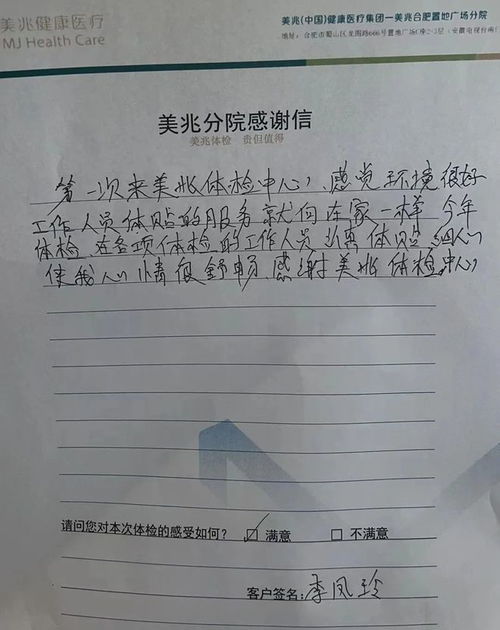 美兆健康医疗
MJ Health Care
美兆(中国)健康医疗集团一美兆合肥置地广场分院
地址：合肥市蜀山区龙图路666号置地广场C座2-3层（安徽电视台南）
美兆分院感谢信
美兆体检 贵但值得
第一次来美兆体检中心，感觉环境很好
工作人员体贴的服务就向在家一样 今年
体检 在各项体检的工作人员 体贴 细心
使我心情很舒畅 感谢美兆体检中心
请问您对本次体检的感受如何？ ☑ 满意 □ 不满意
客户签名：李凤玲